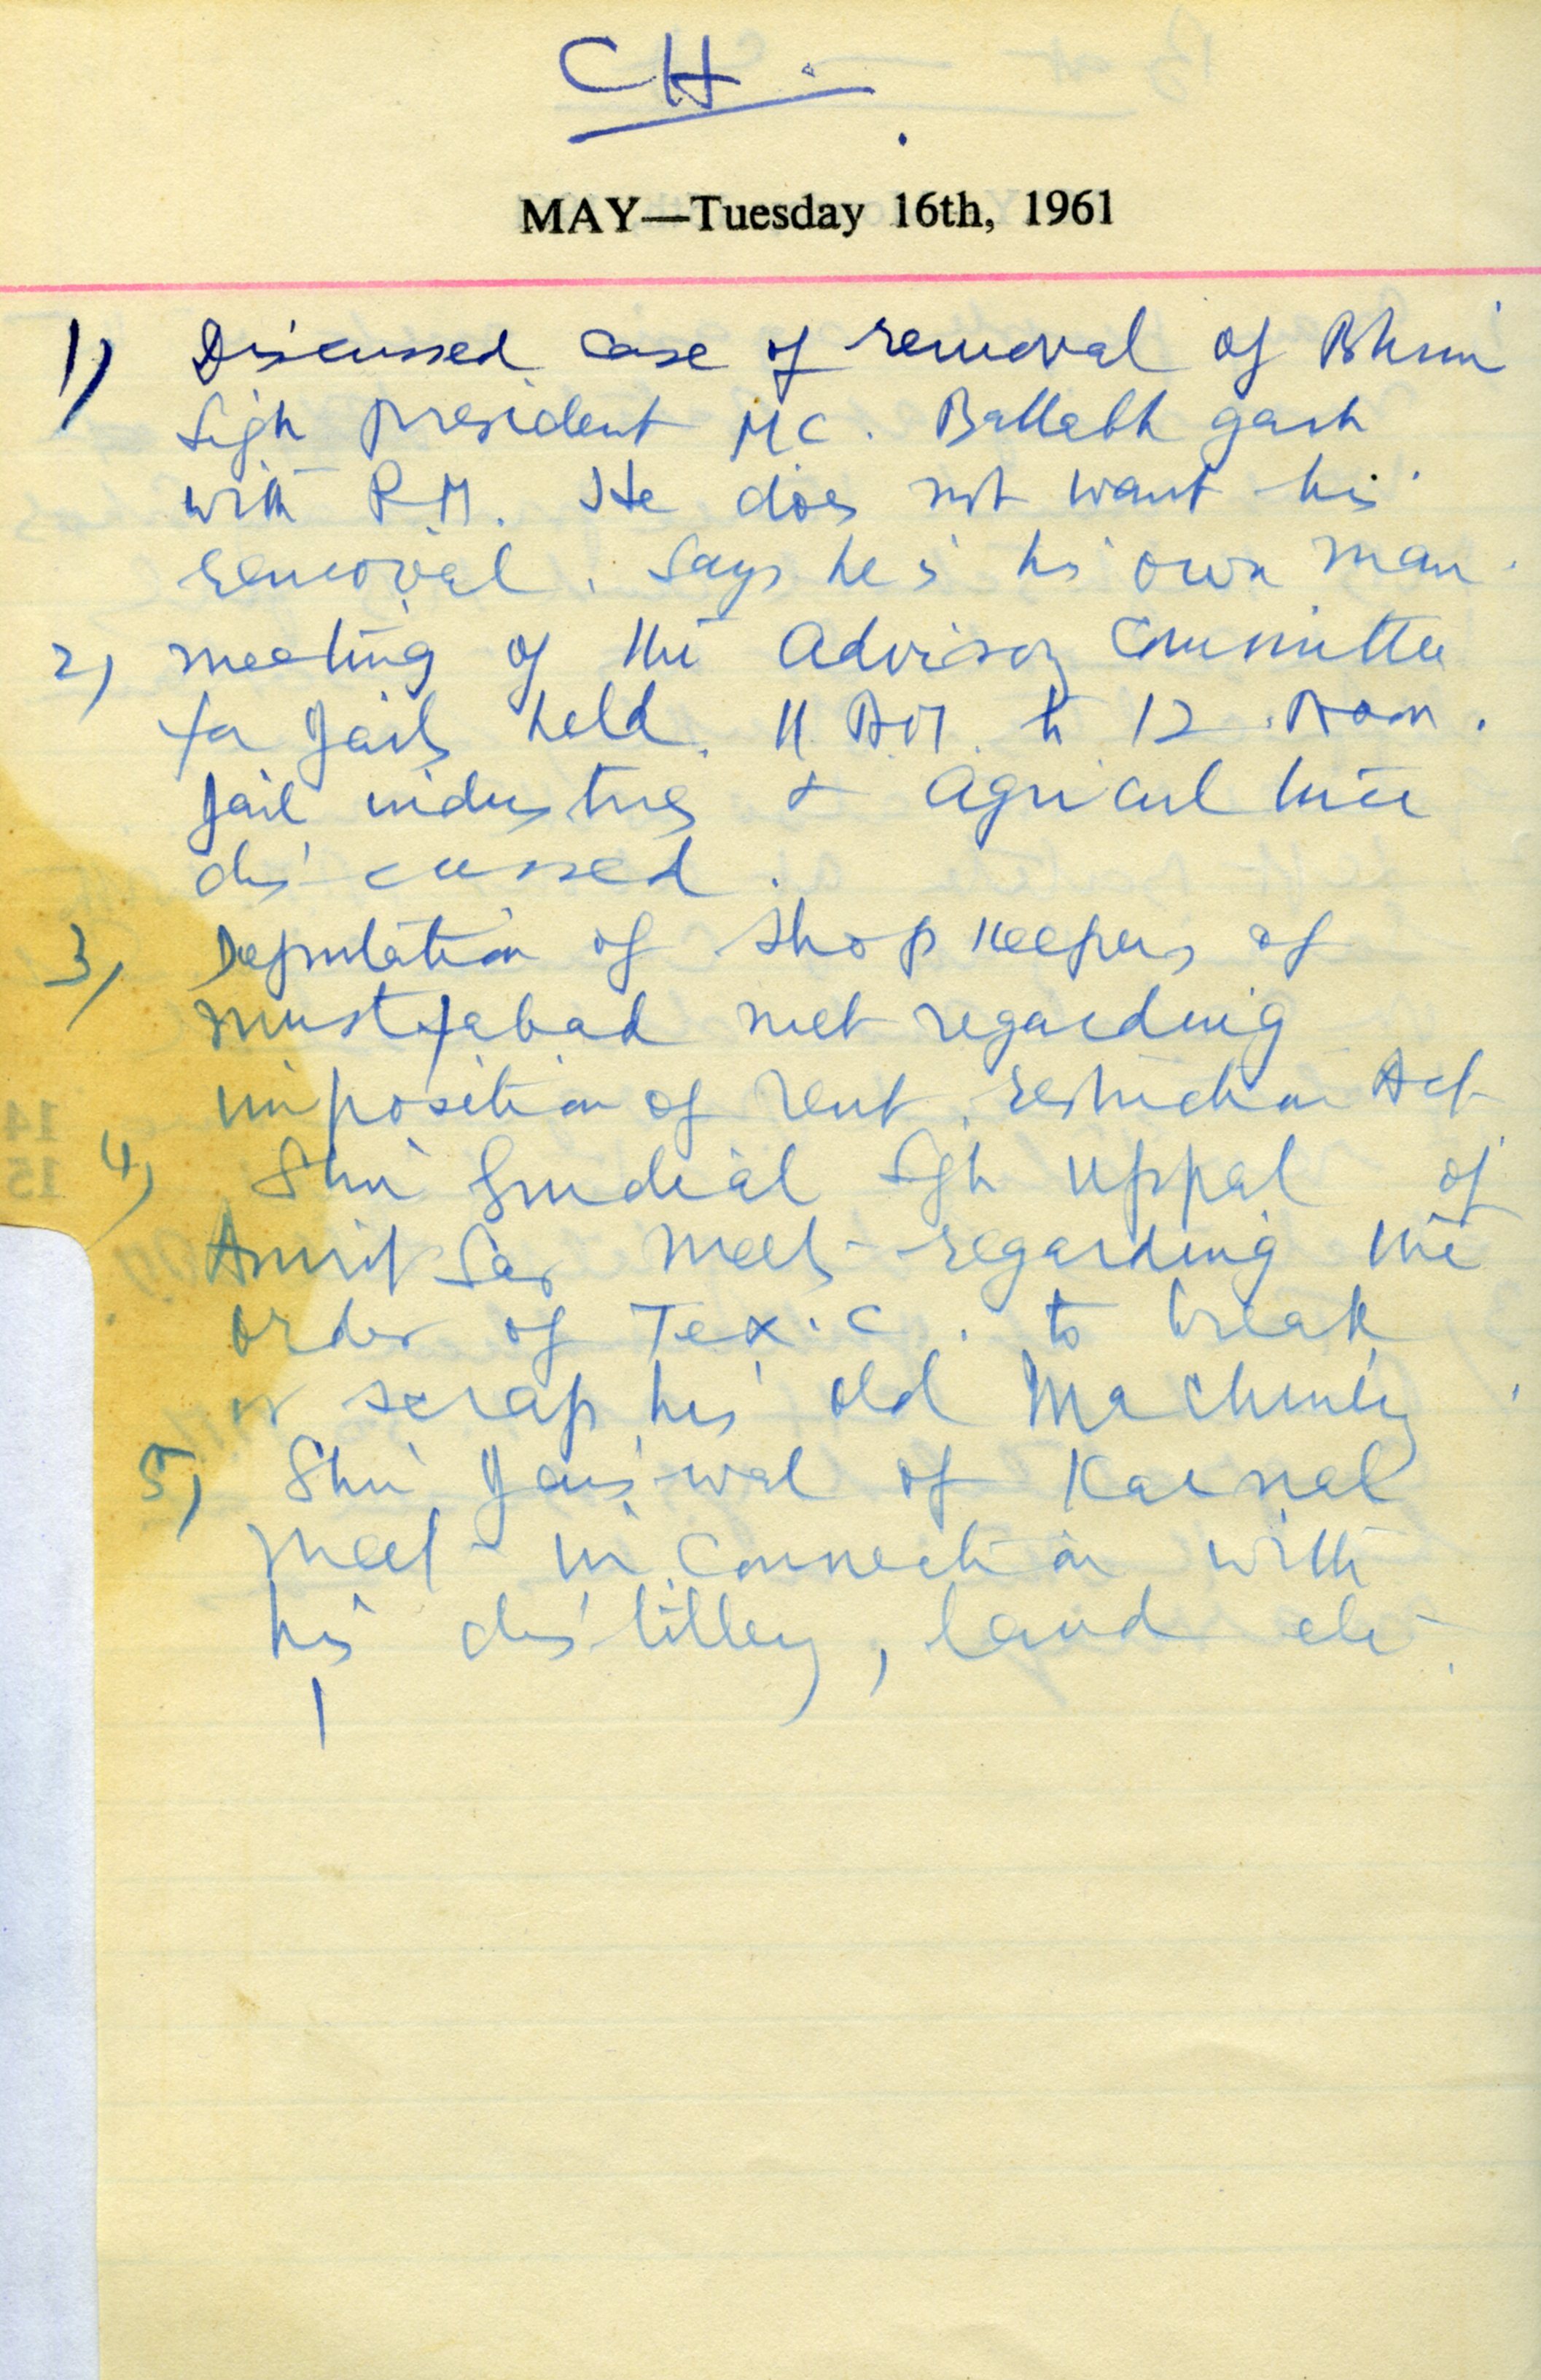 CH.
MAY—Tuesday 16th, 1961
1) Discussed case of removal of Bhim
Sigh president MC. Ballabh garh
with R.M. He does not want his
removal. Says he is his own man.
2) meeting of the Advisory Committee
for Jails held. 11 AM. to 12 Noon.
Jail industries & agriculture
discussed.
3) Deputation of Shop Keepers of
Mustfabad met regarding
imposition of rent restriction Act
4) Shri Gurdial Sgh Uppal of
Amrit Sar meets regarding the
order of Tex. C. to break
or scrap his old Machinery
5) Shri Jaiswal of Karnal
meet in connection with
his distillery, land etc.